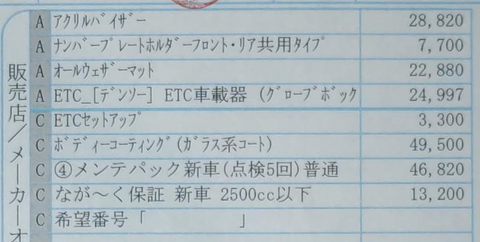 A ｱｸﾘﾙﾊﾞｲｻﾞｰ 28,820
A ﾅﾝﾊﾞｰﾌﾟﾚｰﾄﾎﾙﾀﾞｰﾌﾛﾝﾄ･ﾘｱ共用ﾀｲﾌﾟ 7,700
A ｵｰﾙｳｪｻﾞｰﾏｯﾄ 22,880
A ETC_[ﾃﾞﾝｿｰ] ETC車載器 (ｸﾞﾛｰﾌﾞﾎﾞｯｸ 24,997
C ETCｾｯﾄｱｯﾌﾟ 3,300
C ﾎﾞﾃﾞｨｰｺｰﾃｨﾝｸﾞ(ｶﾞﾗｽ系ｺｰﾄ) 49,500
C ④メンテパック新車(点検5回)普通 46,820
C なが～く保証 新車 2500cc以下 13,200
C 希望番号「 」
販売店／メーカーオ